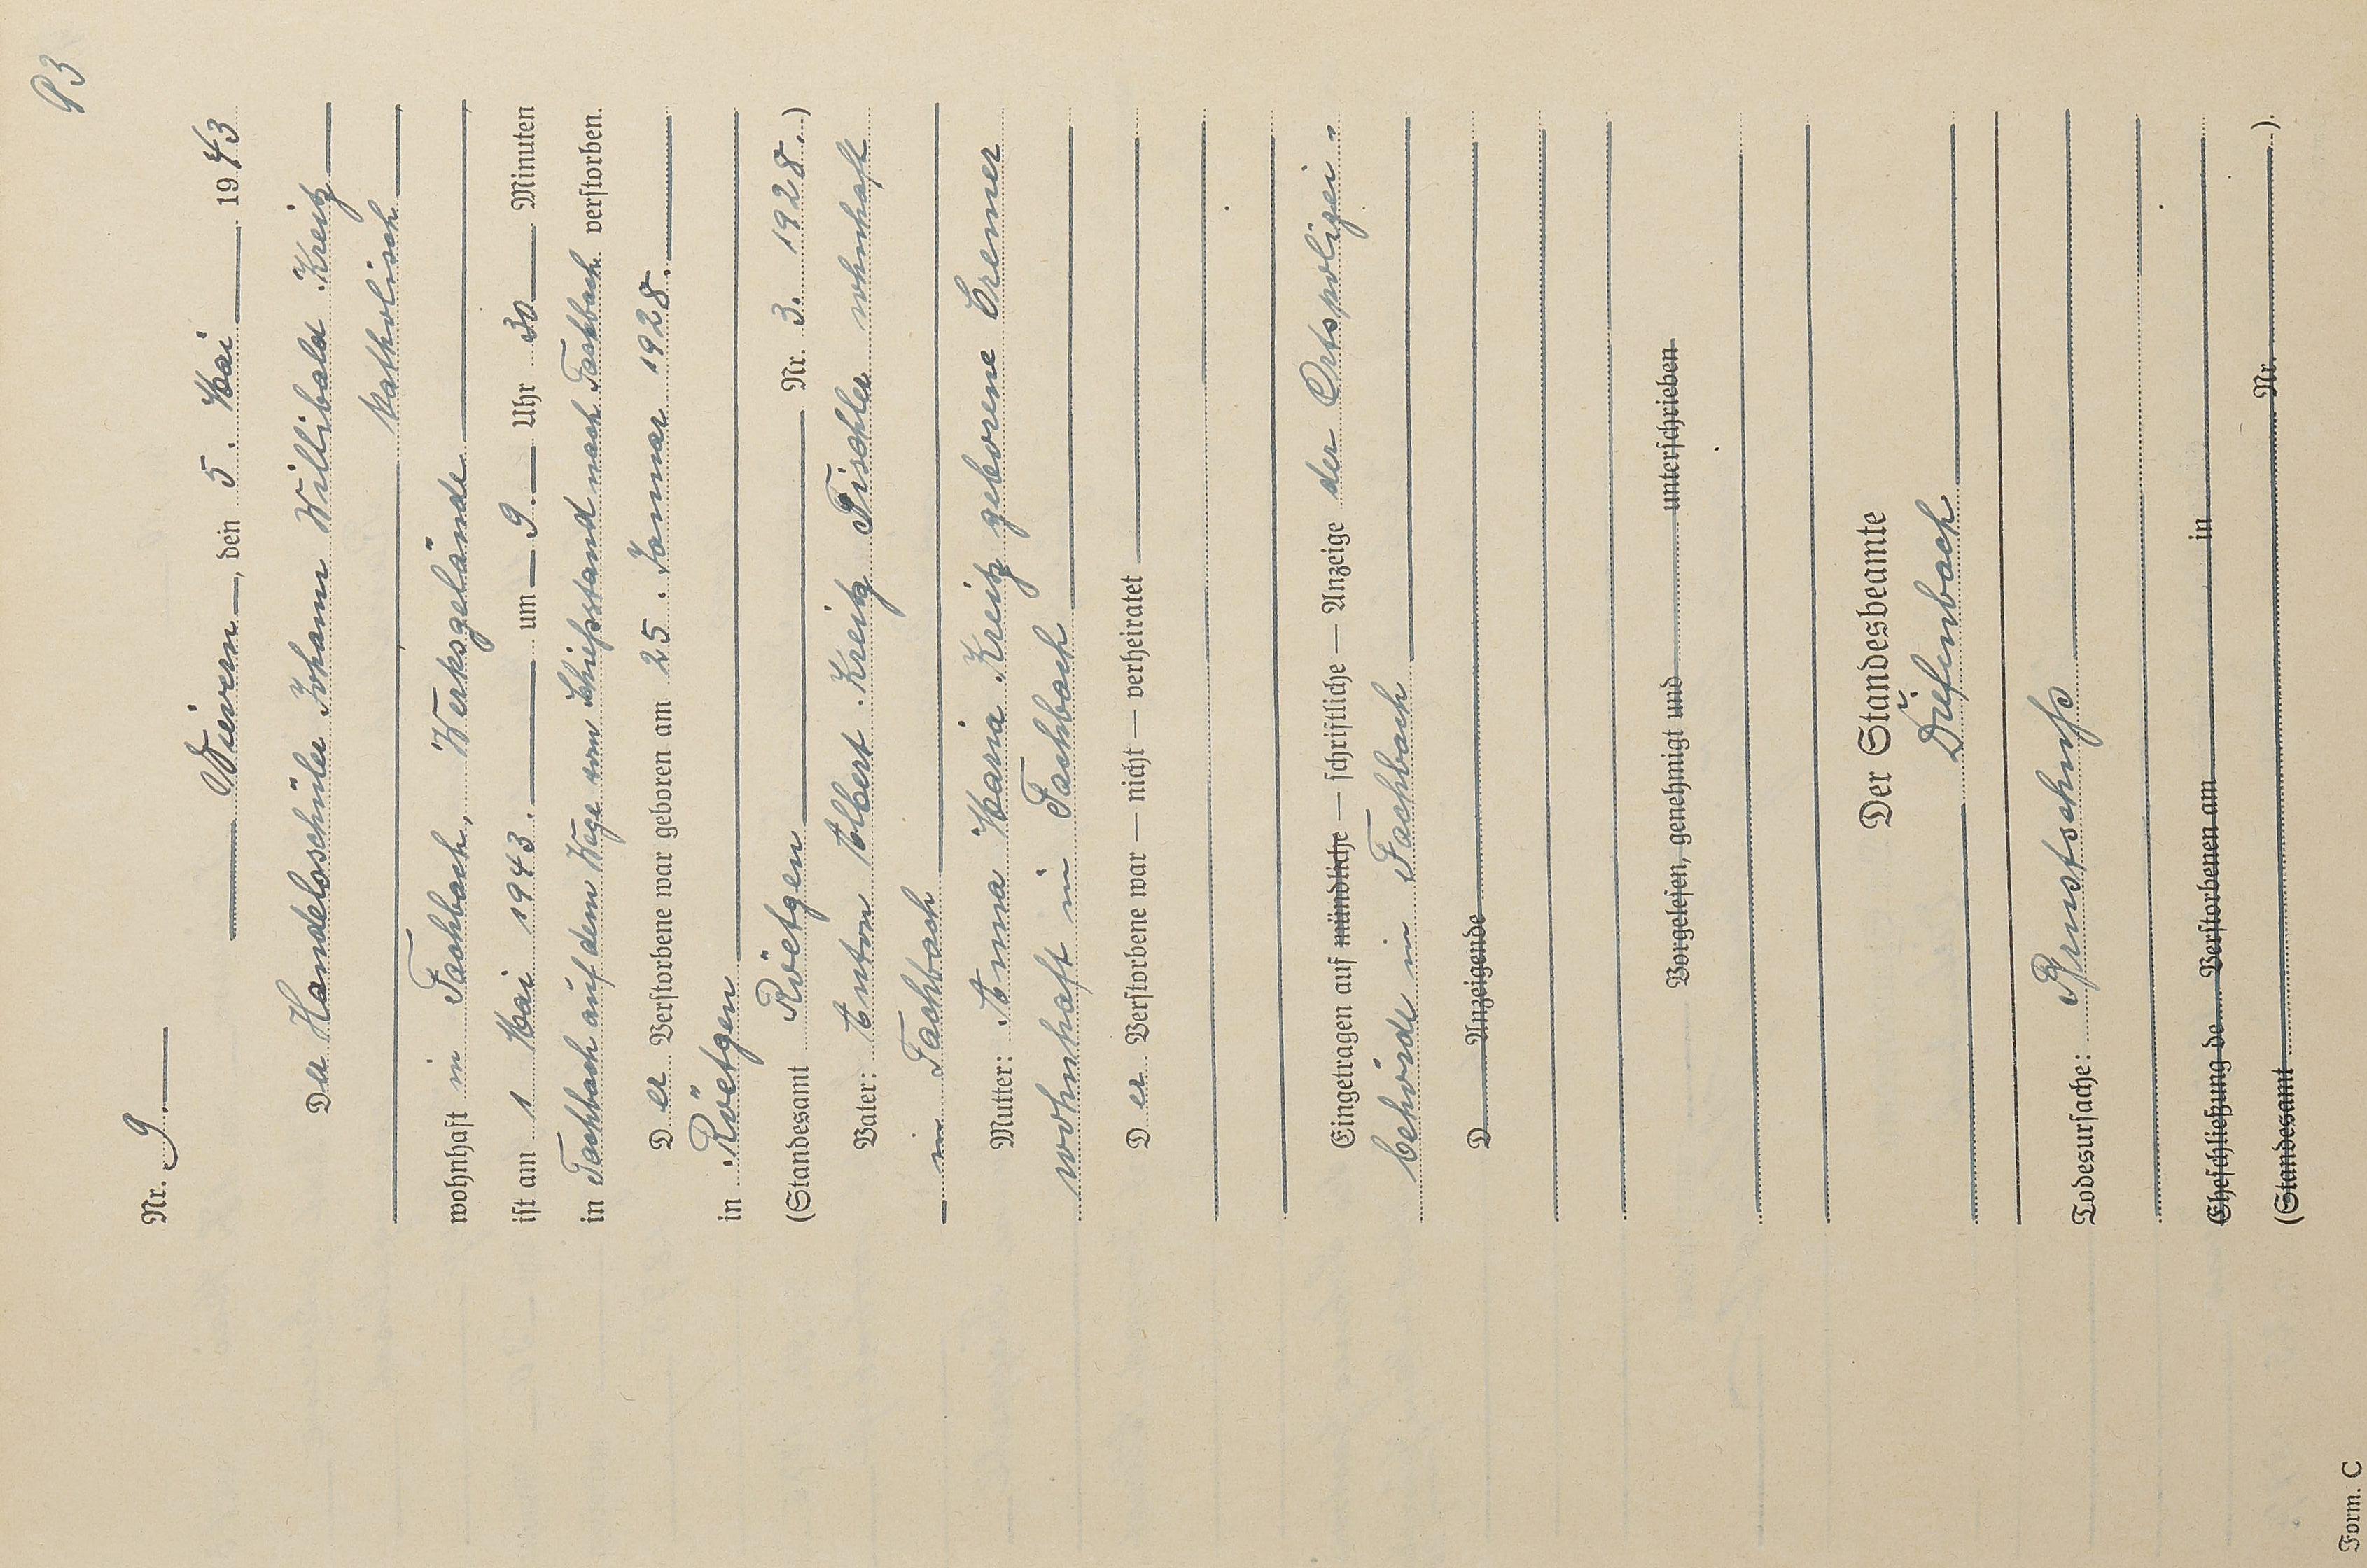 93
Nr. 9.
Nievern, den 5. Mai 1943
Der Handelsschüler Johann Willibald Kreitz
katholisch
wohnhaft in Fachbach, Werksgelände
ist am 1 Mai 1943. um 9. Uhr 30 Minuten
in Fachbach auf dem Wege vom Schießstand nach Fachbach verstorben.
D er Verstorbene war geboren am 25. Januar 1928.
in Röetgen
(Standesamt Röetgen Nr. 3. 1928.)
Vater: Anton Albert Kreitz Tischler wohnhaft
in Fachbach
Mutter: Anna Maria Kreitz geborene Cremer
wohnhaft in Fachbach
D er Verstorbene war — nicht — verheiratet
Eingetragen auf mündliche — schriftliche — Anzeige der Ortspolizei-
behörde in Fachbach
D Anzeigende
Vorgelesen, genehmigt und unterschrieben
Der Standesbeamte
Diefenbach
Todesursache: Brustschuß
Eheschließung de Verstorbenen am in
(Standesamt Nr. ).
Form. C